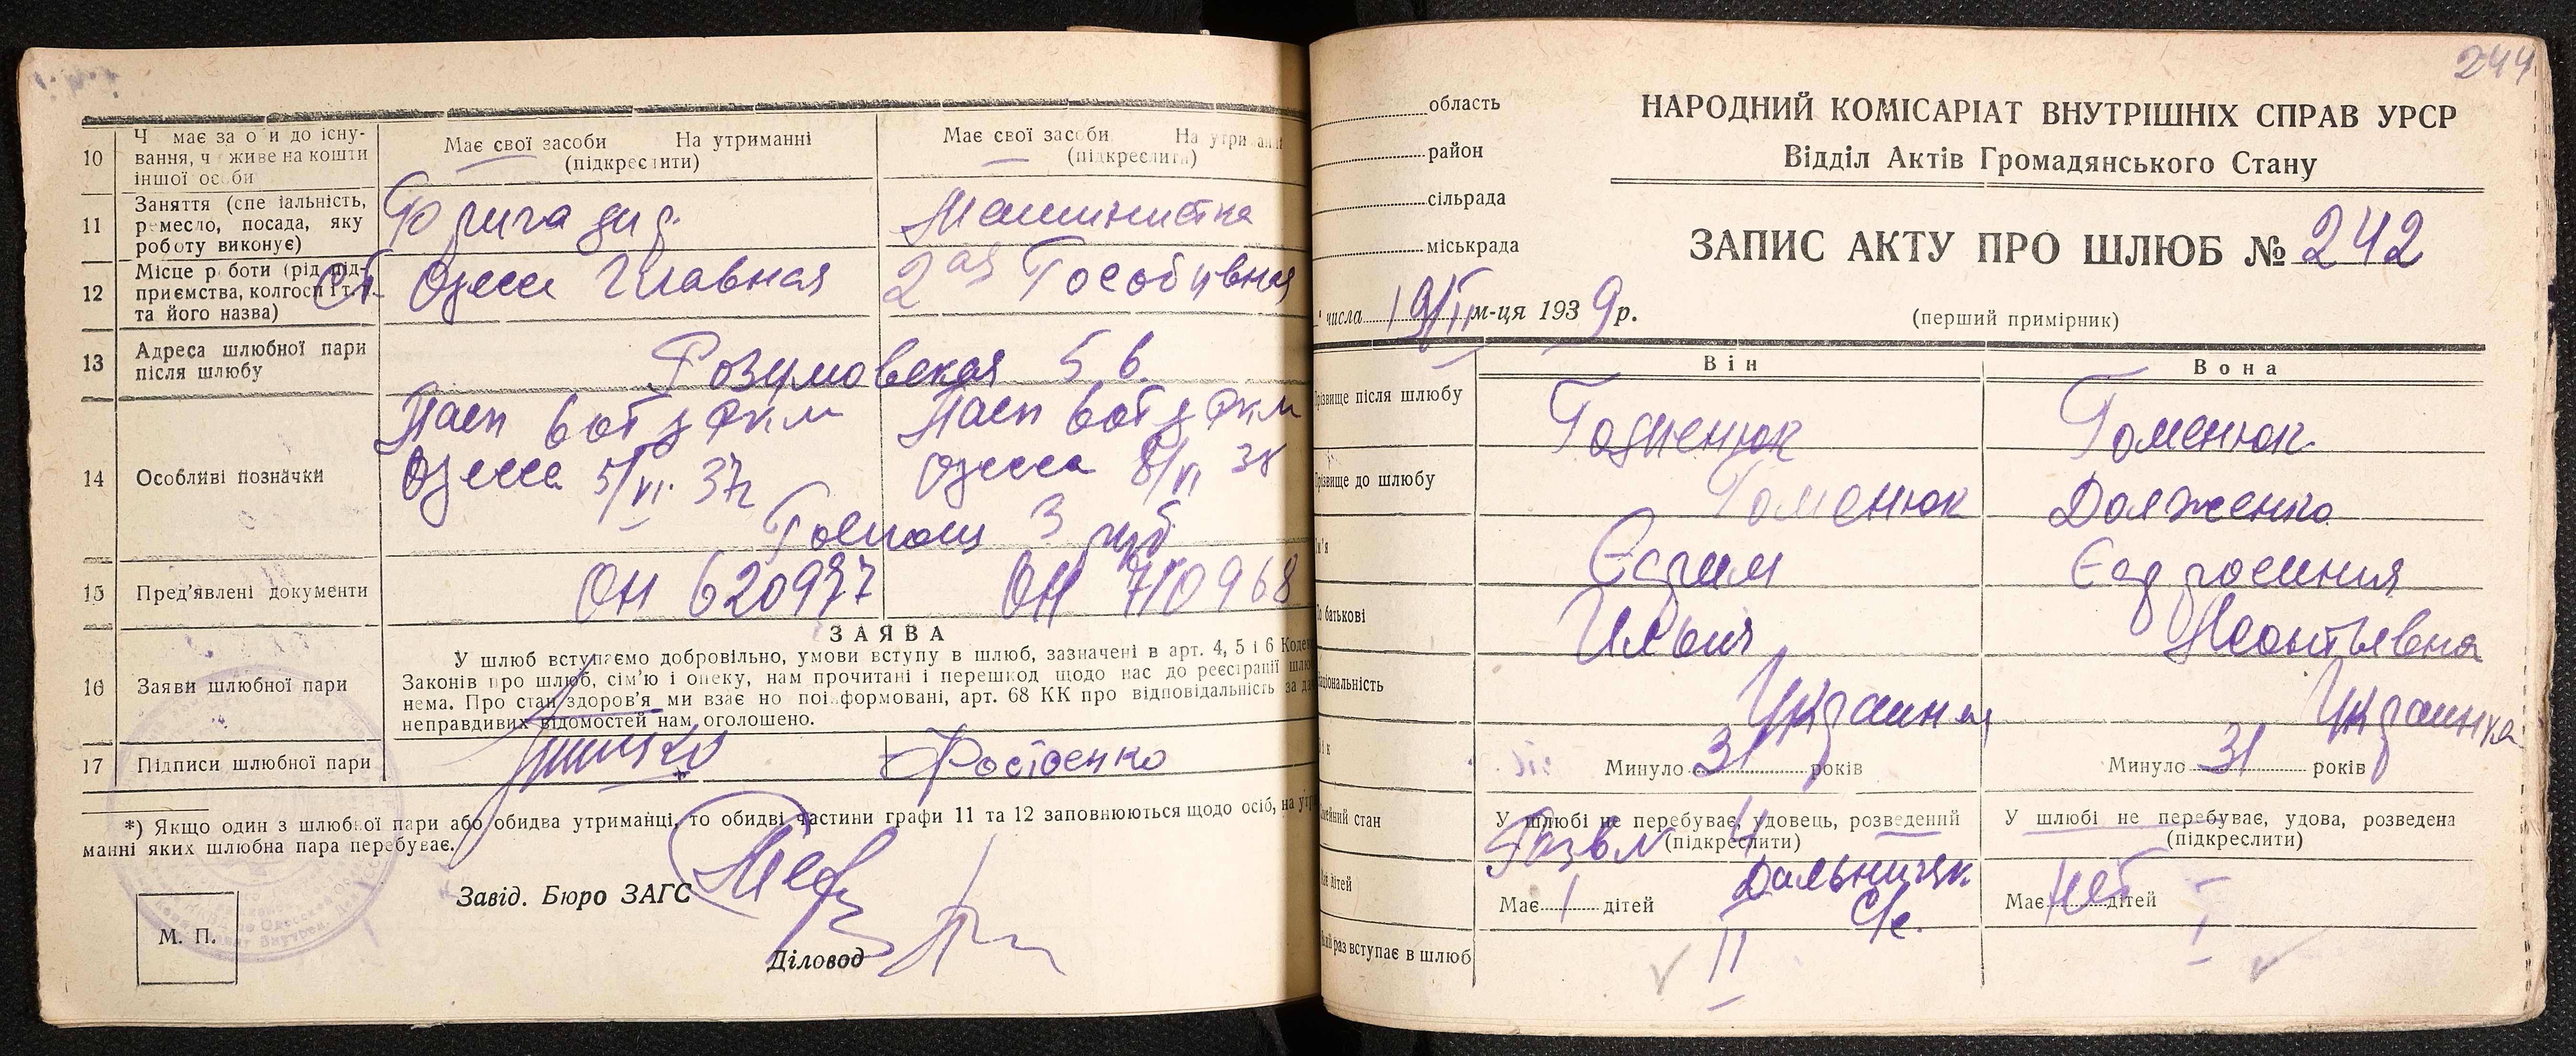 10 Ч має за о и до існу-
вання, ч живе на кошти
іншої особи
Має свої засоби На утриманні
(підкреслити)
Має свої засоби На утриманні
(підкреслити)
11 Заняття (спе іальність,
ремесло, посада, яку
роботу виконує)
Бригадир
Машинистка
12 Місце р боти (рід під-
приємства, колгосп і т.п.
та його назва)
Ст. Одесса Главная
2ая Гособувная
13 Адреса шлюбної пари
після шлюбу
Розумовская 5 6
14 Особливі позначки
Пасп 6 от РКМ
Одесса 5/VI. 37г
Пасп 6 от РКМ
Одесса 8/VI 38
Госпош 3 руб
15 Пред'явлені документи
ОН 620977
ОН 710968
16 Заяви шлюбної пари
ЗАЯВА
У шлюб вступаємо добровільно, умови вступу в шлюб, зазначені в арт. 4, 5 і 6 Кодек
Законів про шлюб, сім'ю і опеку, нам прочитані і перешкод щодо нас до реєстрації шлю
нема. Про стан здоров'я ми взає но поі формовані, арт. 68 КК про відповідальність за
неправдивих відомостей нам оголошено.
17 Підписи шлюбної пари
*) Якщо один з шлюбної пари або обидва утриманці, то обидві частини графи 11 та 12 заповнюються щодо осіб, на утри
манні яких шлюбна пара перебуває.
Завід. Бюро ЗАГС
М. П.
Діловод
244
область
район
сільрада
міськрада
НАРОДНИЙ КОМІСАРІАТ ВНУТРІШНІХ СПРАВ УРСР
Відділ Актів Громадянського Стану
ЗАПИС АКТУ ПРО ШЛЮБ № 242
числа 19/II м-ця 1939 р.
(перший примірник)
Він
Вона
різвище після шлюбу
Гоменюк
Гоменюк
різвище до шлюбу
Гоменюк
Долженко
м'я
Єфим
Єфросиния
о батькові
Ильич
Леонтьевна
аціональність
Украинец
Украинка
ік
Минуло 31 років
Минуло 31 років
імейний стан
У шлюбі не перебуває, удовець, розведений
(підкреслити)
Развл
У шлюбі не перебуває, удова, розведена
(підкреслити)
дітей
Має 1 дітей
Дальницк
С/с.
Має нет дітей
раз вступає в шлюб
II
I